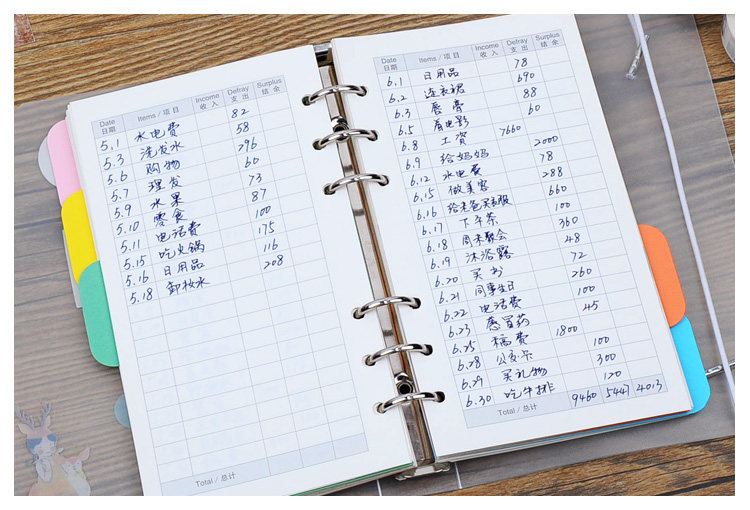 Date 日期 Items / 项目 Income 收入 Defray 支出 Surplus 结余
5.1 水电费 82
5.3 洗发水 58
5.6 购物 296
5.7 理发 60
5.9 水果 73
5.10 零食 87
5.11 电话费 100
5.15 吃火锅 175
5.16 日用品 116
5.18 卸妆水 208
Total / 总计
Date 日期 Items / 项目 Income 收入 Defray 支出 Surplus 结余
6.1 日用品 78
6.2 连衣裙 690
6.3 唇膏 88
6.5 看电影 60
6.8 工资 7660
6.9 给妈妈 2000
6.12 水电费 78
6.15 做美容 288
6.16 给老爸买衣服 660
6.17 下午茶 100
6.18 周末聚会 360
6.19 沐浴露 48
6.20 买书 72
6.21 同事生日 260
6.22 电话费 100
6.23 感冒药 45
6.25 稿费 1800
6.28 公交卡 100
6.29 买礼物 300
6.30 吃牛排 120
Total / 总计 9460 5447 4013